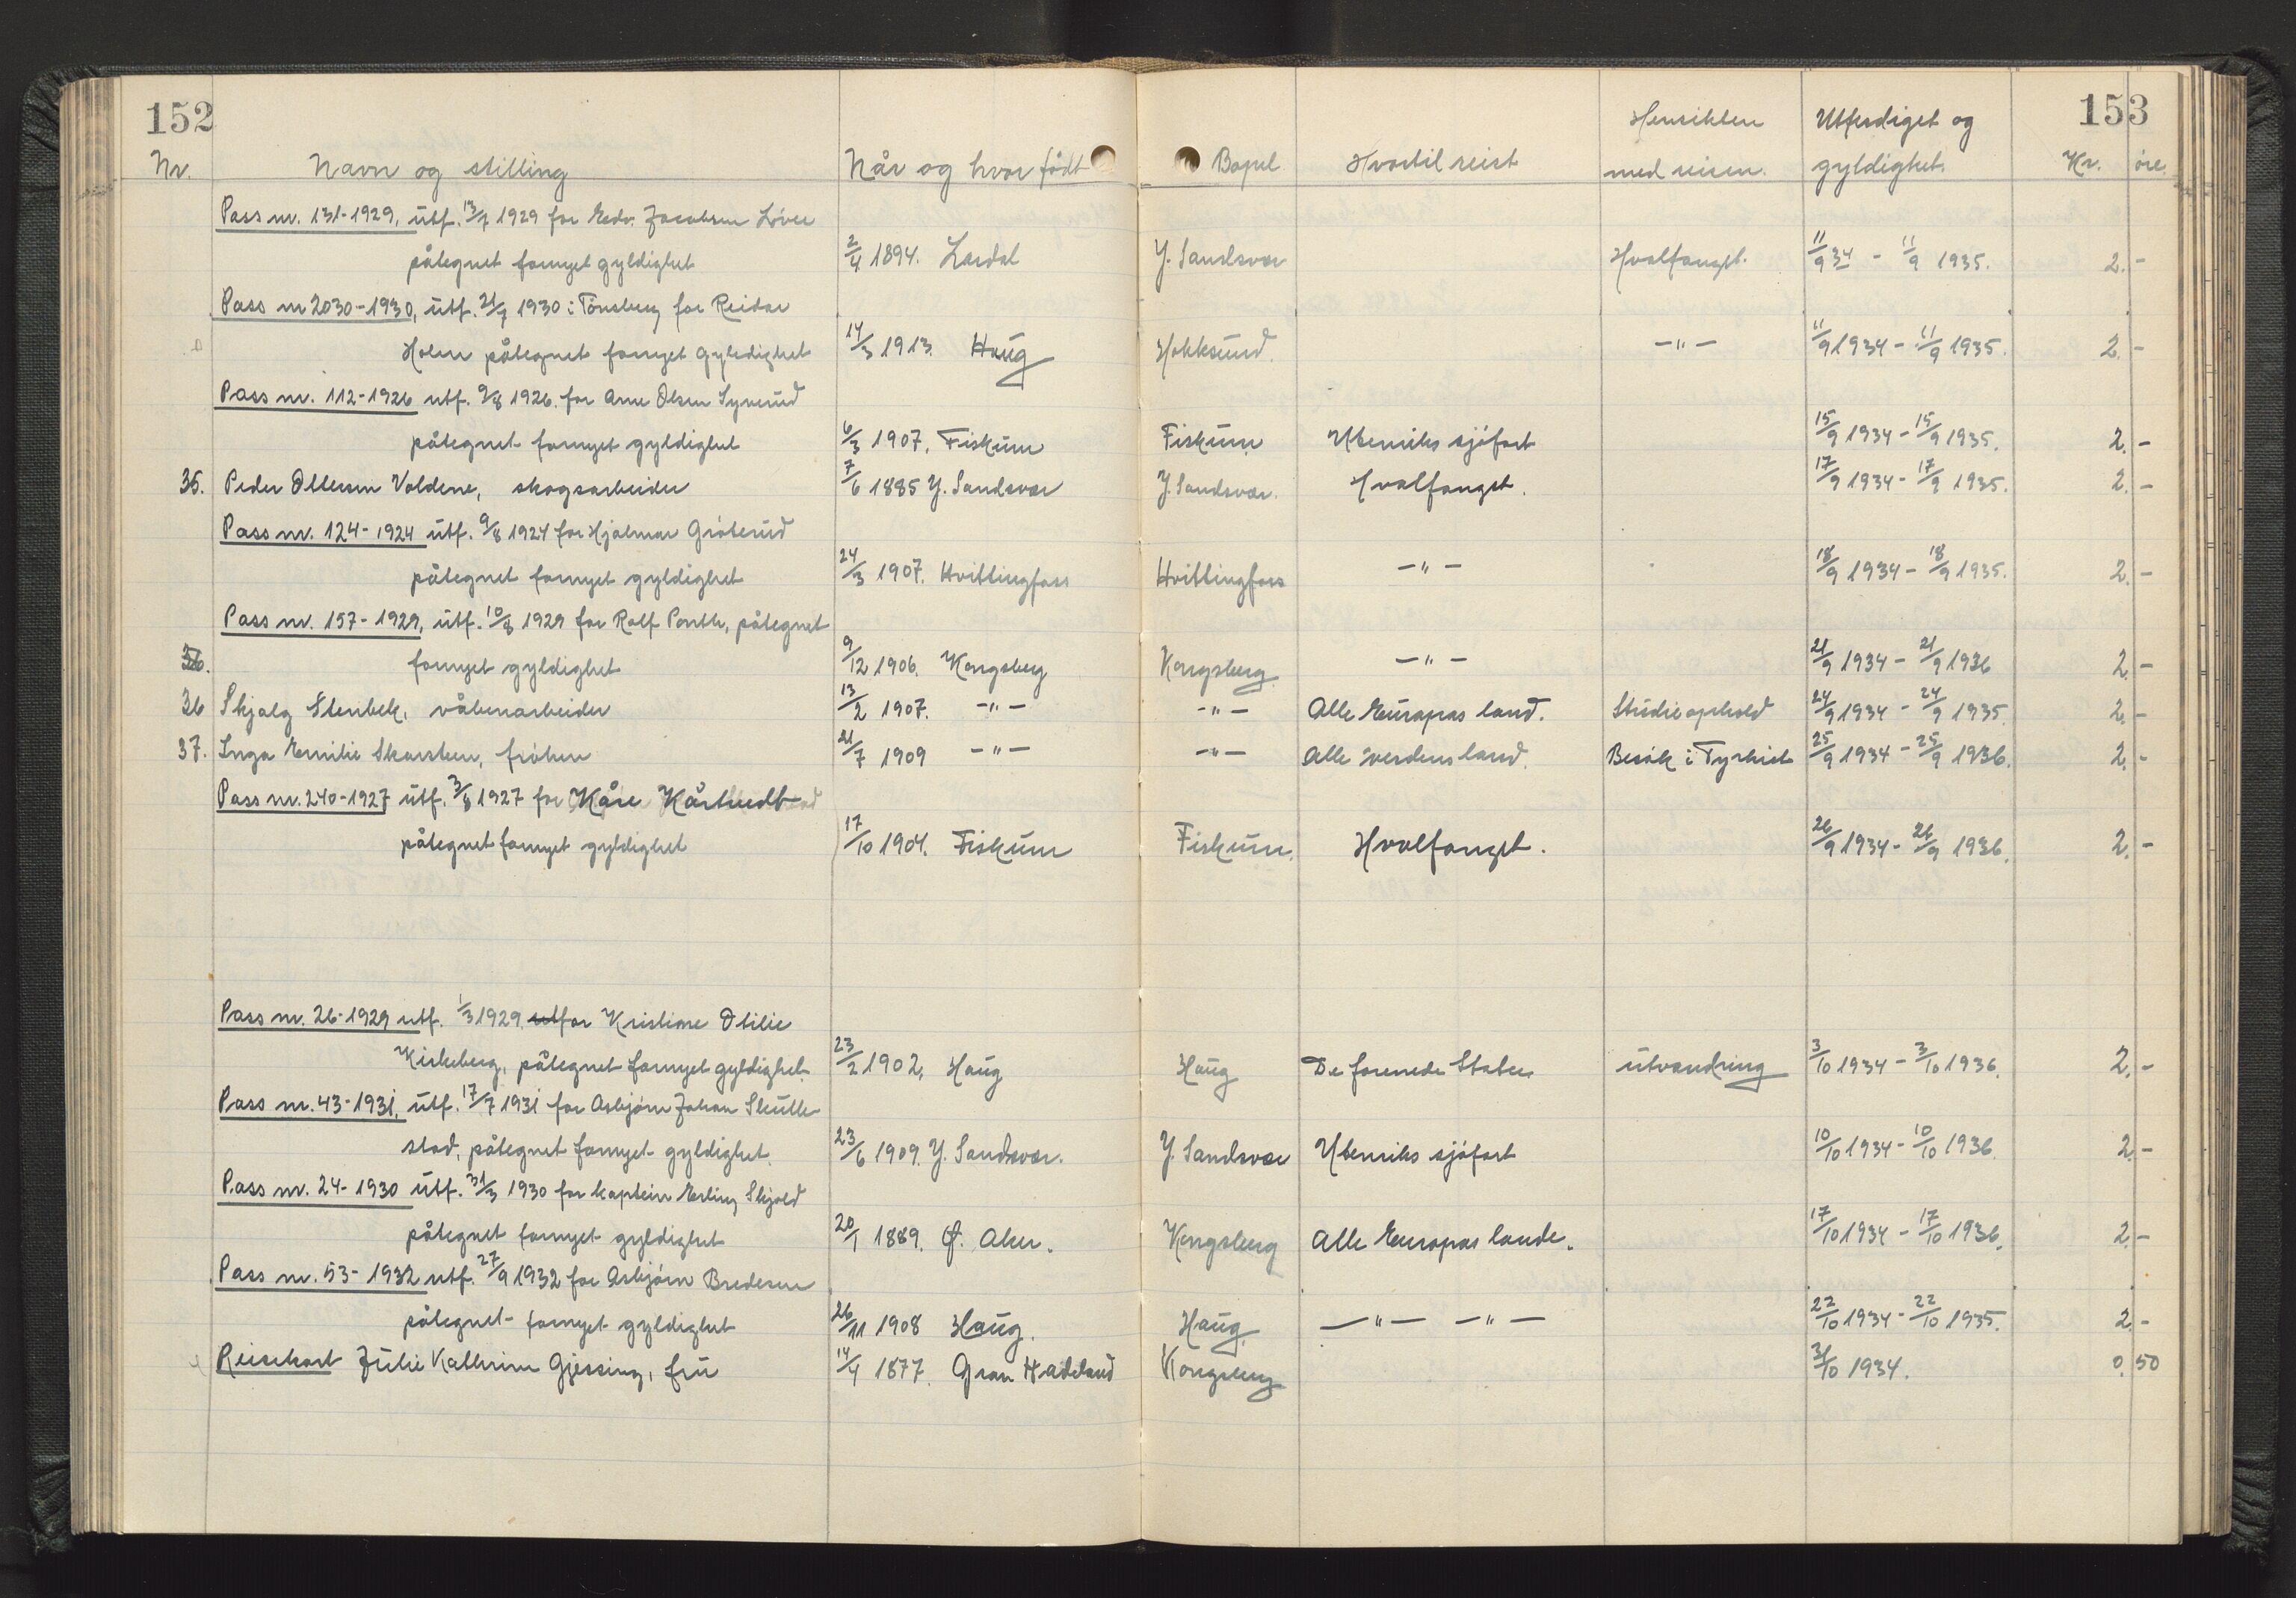 152
153
Hensikten Utferdiget og
Nr. Navn og stilling Når og hvor født Bopel Hvortil reist med reisen. gyldighet. Kr. øre.
Pass nr. 131-1929, utf. 13/7 1929 for Edv. Jacobsen
påtegnet fornyet gyldighet 2/4 1894. Lardal Y. Sandsvær Hvalfangst. 11/9 34 - 11/9 1935. 2. -
Pass nr 2030-1930, utf. 21/7 1930 i Tønsberg for Reidar
Holm påtegnet fornyet gyldighet 14/3 1913. Haug Hokksund. -"- 11/9 1934 - 11/9 1935. 2. -
Pass nr. 112-1926 utf. 9/8 1926. for Arne Olsen Syverud
påtegnet fornyet gyldighet 6/3 1907. Fiskum Fiskum Utenriks sjøfart 15/9 1934 - 15/9 1935. 2. -
35. Peder Ollesen Voldene, skogsarbeider 7/6 1885 Y. Sandsvær Y. Sandsvær. Hvalfangst. 17/9 1934 - 17/9 1935. 2. -
Pass nr. 124-1924 utf. 9/8 1924 for Hjalmar Gråterud
påtegnet fornyet gyldighet 24/3 1907. Hvittingfoss Hvittingfoss -"- 18/9 1934 - 18/9 1935. 2. -
Pass nr. 157-1929, utf. 10/8 1929 for Rolf, påtegnet
36. fornyet gyldighet 9/12 1906. Kongsberg Kongsberg -"- 21/9 1934 - 21/9 1936 2. -
36 Skjalg Stenbek, våbenarbeider 13/2 1907. -"- -"- Alle Europas land. Studieophold 24/9 1934 - 24/9 1935. 2. -
37. Inga Emilie Skarsteen, frøken 21/7 1909 -"- -"- Alle verdens land. Besøk i Tyrkiet 25/9 1934 - 25/9 1936. 2. -
Pass nr. 240-1927 utf. 3/8 1927 for Kåre Kårtvedt
påtegnet fornyet gyldighet 17/10 1904. Fiskum Fiskum. Hvalfangst. 26/9 1934 - 26/9 1936. 2. -
Pass nr. 26-1929 utf. 1/3 1929. utfor Kristiane Otilie
Kirkeberg, påtegnet fornyet gyldighet. 23/2 1902, Haug Haug De forenede Stater utvandring 3/10 1934 - 3/10 1936. 2. -
Pass nr. 43-1931, utf. 17/7 1931 for Asbjørn Johan Skulle-
stad, påtegnet fornyet gyldighet. 23/6 1909. Y. Sandsvær. Y. Sandsvær Utenriks sjøfart 10/10 1934 - 10/10 1936. 2. -
Pass nr. 24-1930 utf. 31/3 1930 for kaptein Erling Skjold
påtegnet fornyet gyldighet 20/1 1889. Ø. Aker. Kongsberg Alle Europas lande. 17/10 1934 - 17/10 1936. 2. -
Pass nr. 53-1932 utf. 27/9 1932 for Asbjørn Bredesen
påtegnet fornyet gyldighet 26/11 1908 Haug. Haug. -"- -"- 22/10 1934 - 22/10 1935. 2. -
Reisekort Julie Kathrine Gjessing, fru 14/4 1877. Gran Hadeland Kongsberg 31/10 1934. 0. 50